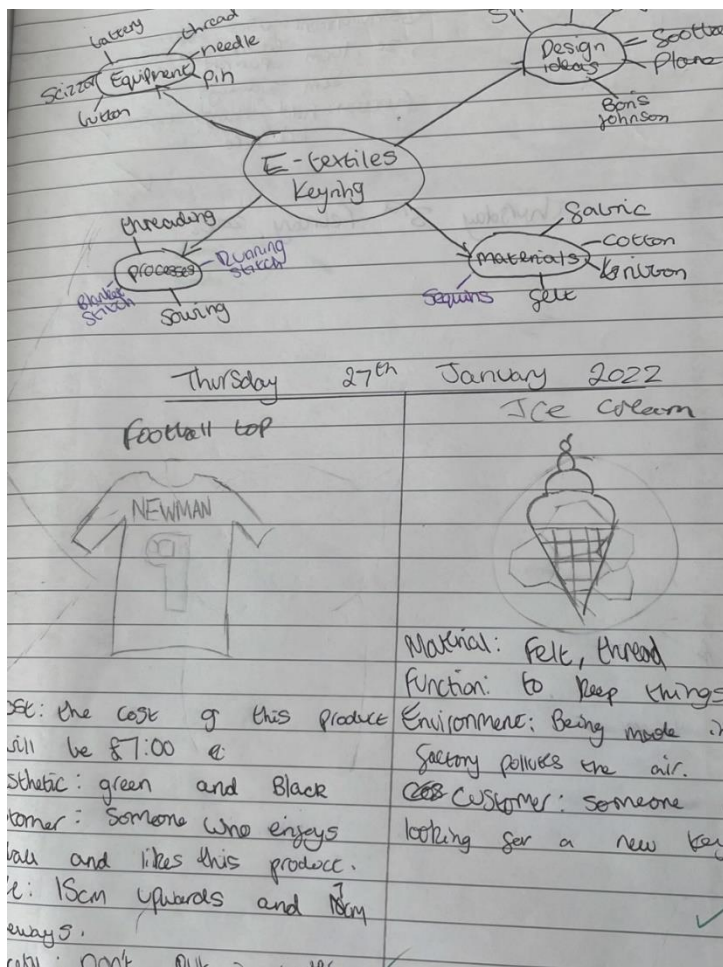 battery
thread
needle
pin
Scizzor
Equipment
button
Design
ideas
Plane
Boris
Johnson
E-textiles
Keyring
threading
Running
Stitch
processes
Blanket
Stitch
Sowing
fabric
cotton
materials
Sequins
felt
Thursday 27th January 2022
Football top
NEWMAN
9
ost: the cost of this product
will be £7:00
sthetic: green and Black
tomer: Someone who enjoys
and likes this product.
15cm upwards and
eways.
Don't
Ice cream
Material: Felt, thread
Function: to keep things
Environment: Being made in
factory pollutes the air.
Customer: Someone
looking for a new key